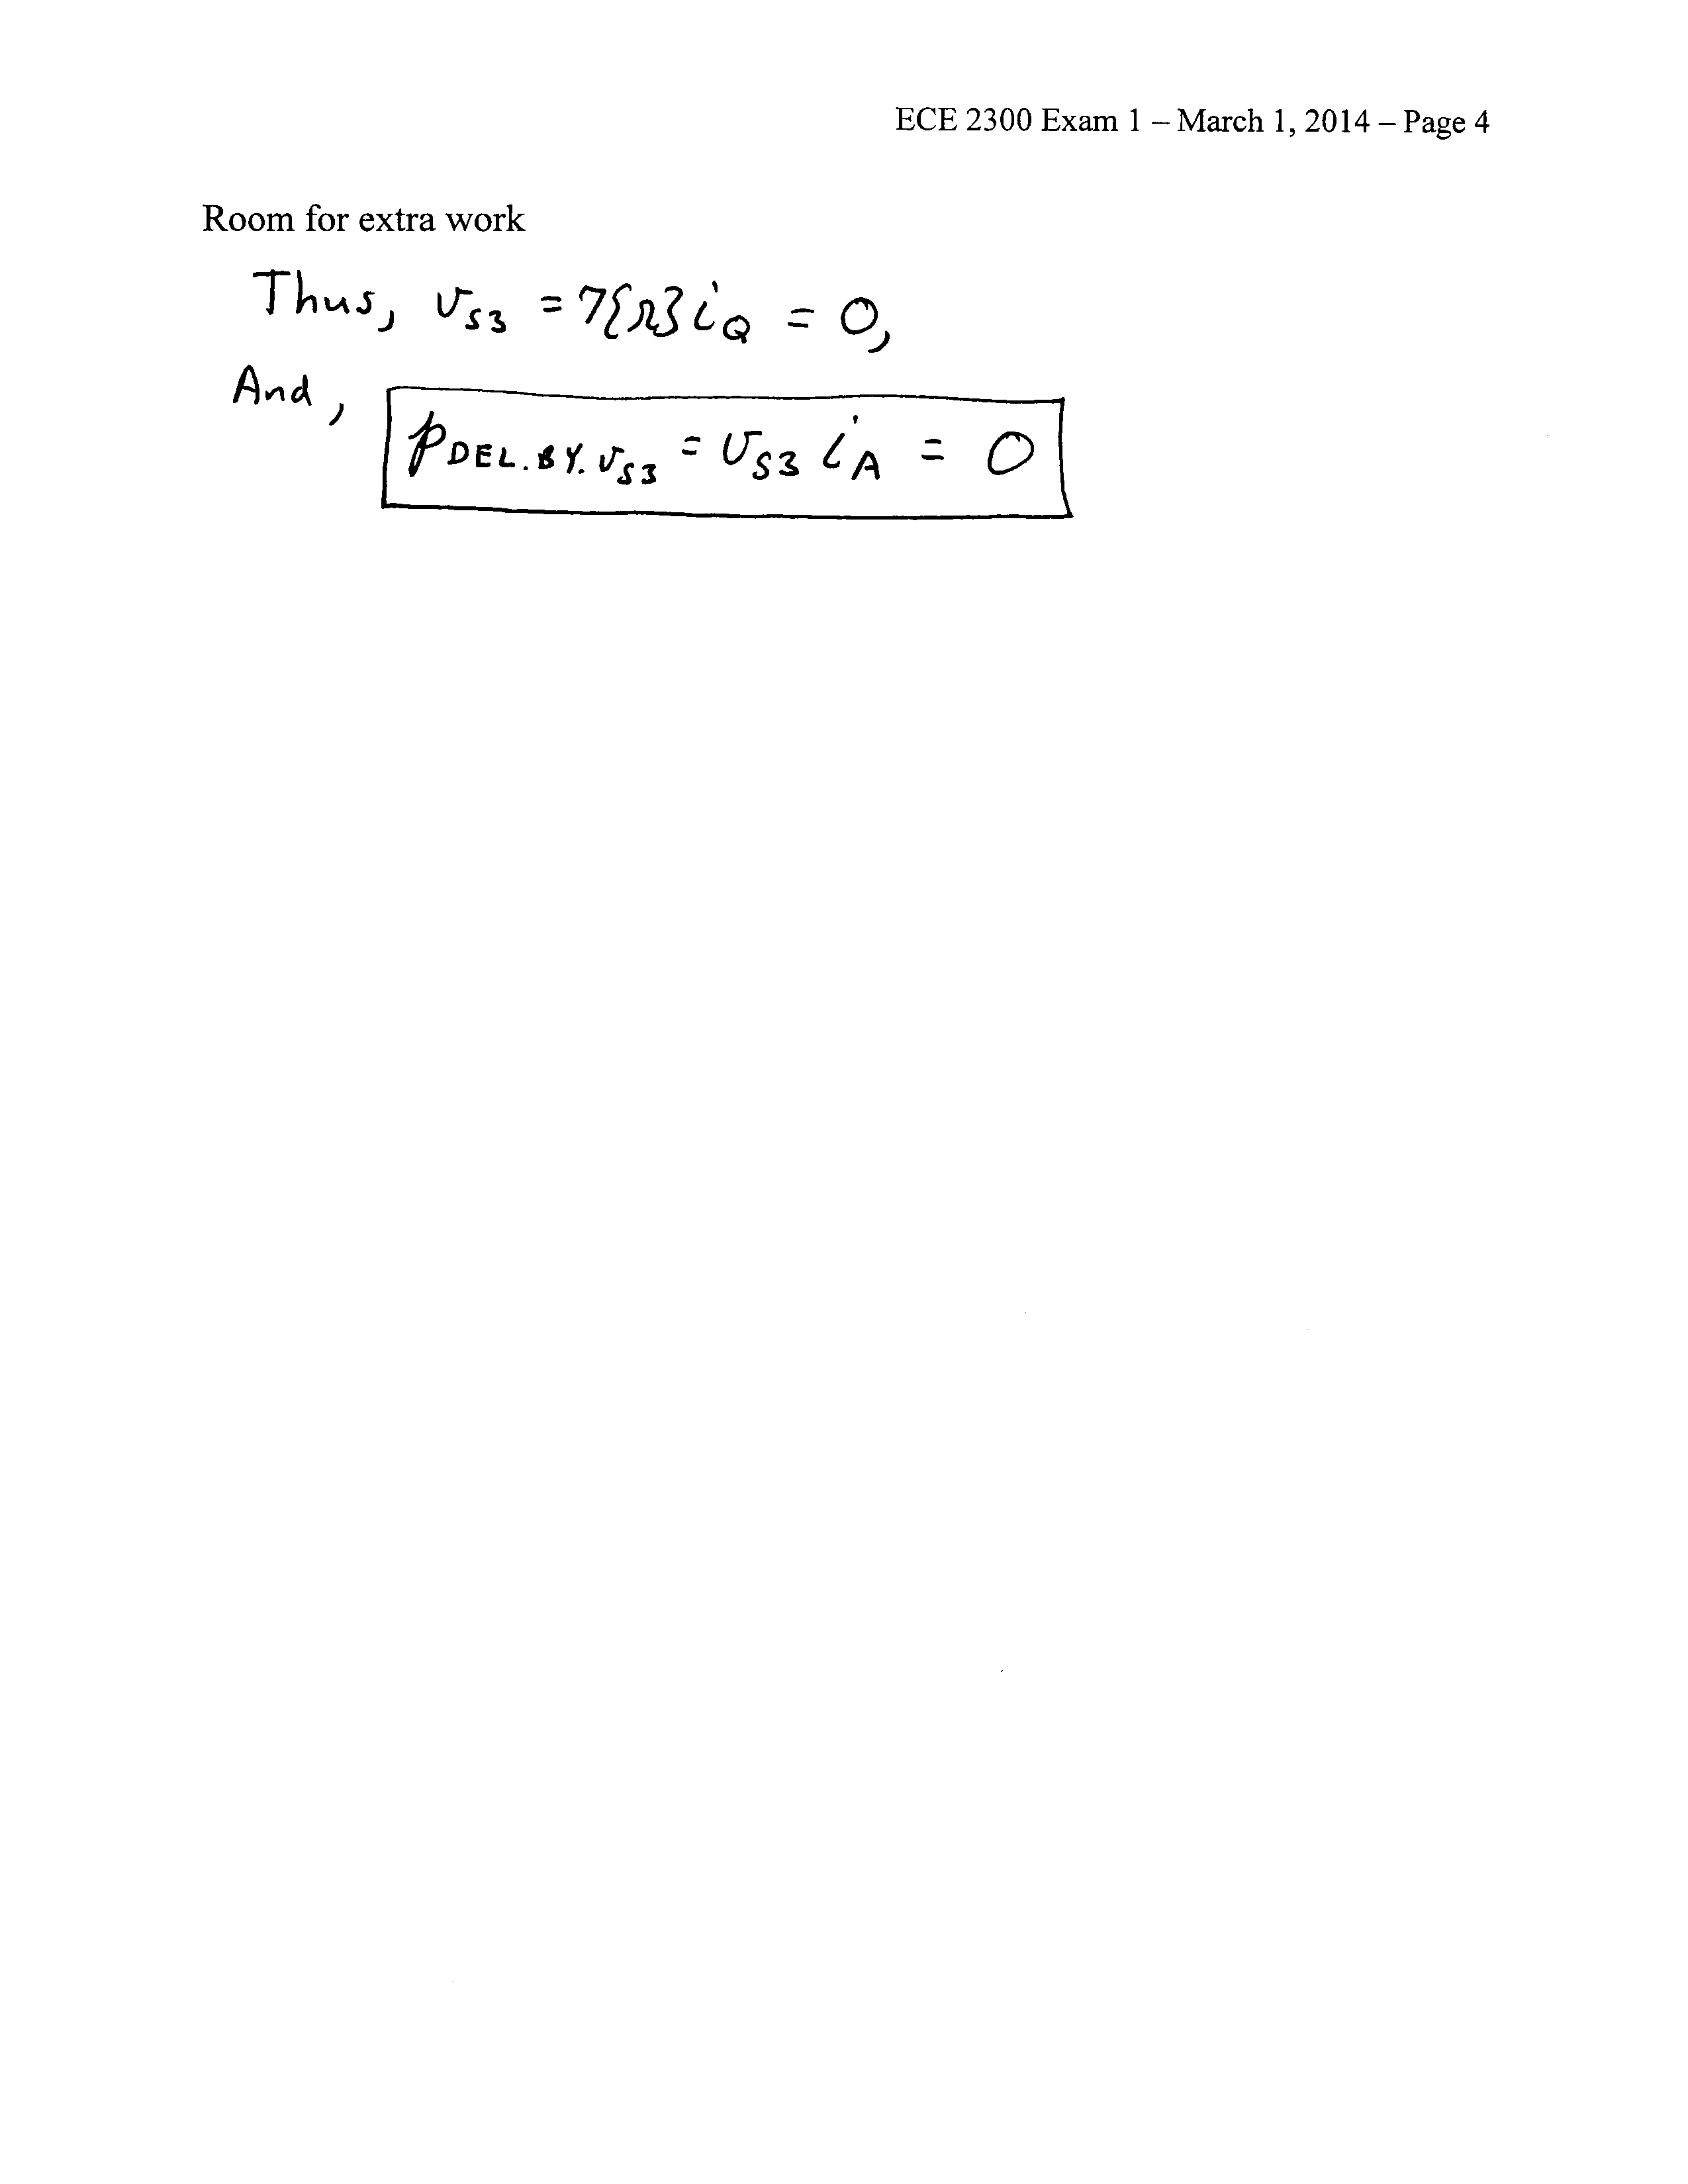 ECE 2300 Exam 1 – March 1, 2014 – Page 4
Room for extra work
Thus, v_S3 = 7{Ω} i_Q = 0,
And, p_DEL.BY.v_S3 = v_S3 i_A = 0